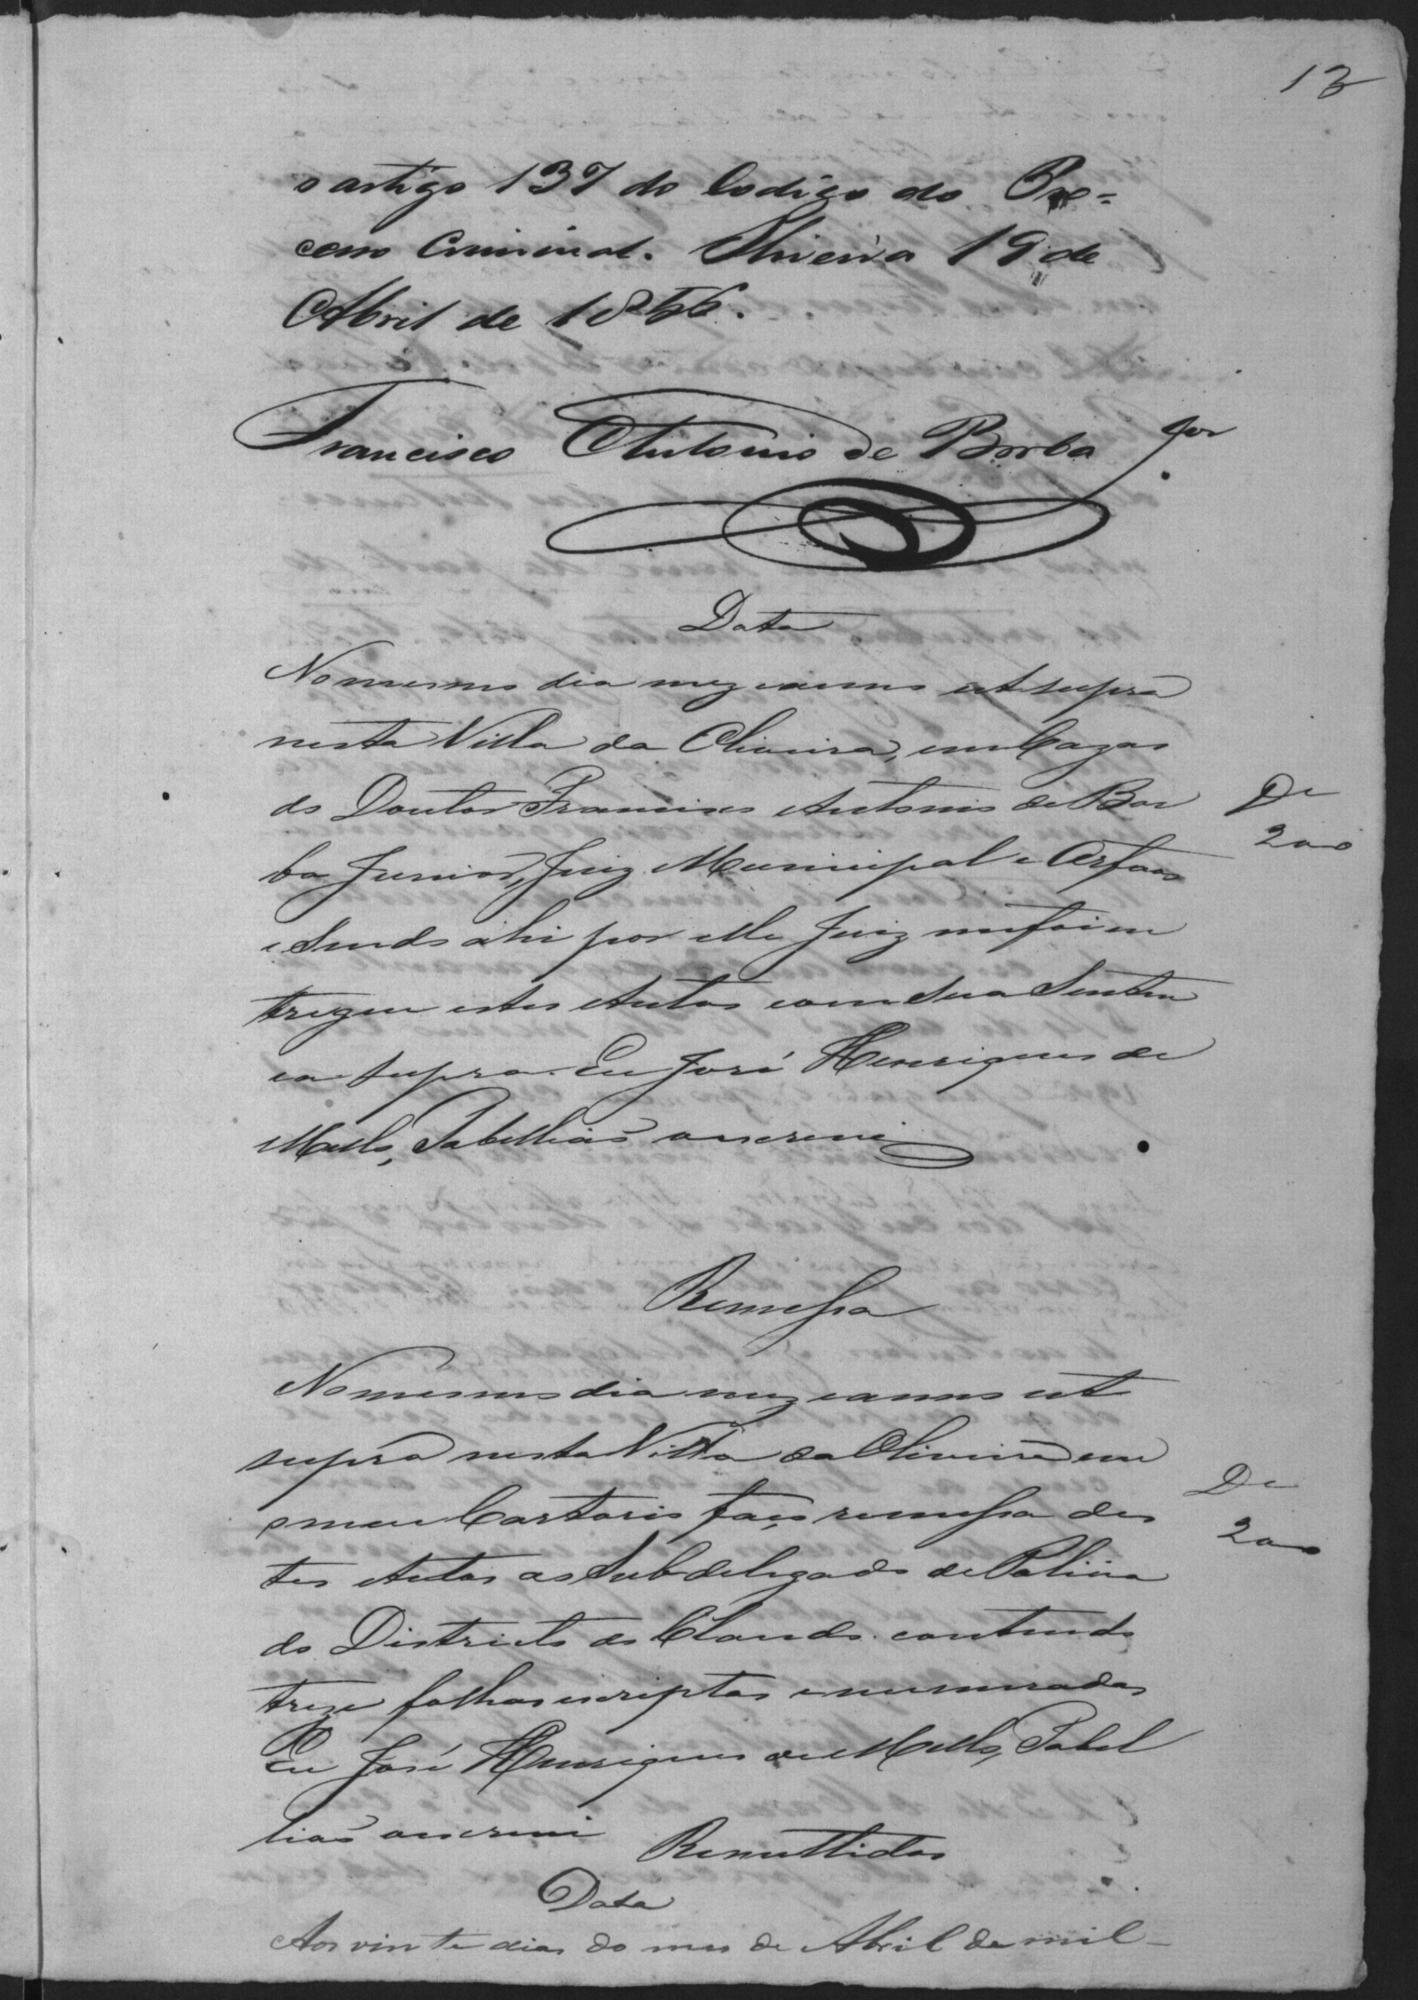 13
o artigo 137 do Codigo do Pro=
cesso Criminal. Oliveira 19 de
Abril de 1866.
Francisco Antonio de Borba Jor
Data
No mesmo dia mez e anno ut supra
nesta Villa da Oliveira, em Cazas
do Doutor Francisco Antonio de Bor
ba Junior, Juiz Municipal e Orfaos
e Sendo ahi por elle Juiz me foi en
tregue estes Autos com sua Senten
ca supra. Eu José Henriques de
Mello, Tabellião o escrevi
De
200
Remessa
No mesmo dia mez e anno ut
supra nesta Villa da Oliveira em
o meu Cartorio faço remessa des
tes Autos ao Subdelegado de Policia
do Districto do Claudo contendo
treze folhas escriptas e numeradas
Eu José Henriques de Mello, Tabel
lião o escrevi
De
200
Remettidos
Data
Aos vinte dias do mes de Abril de mil